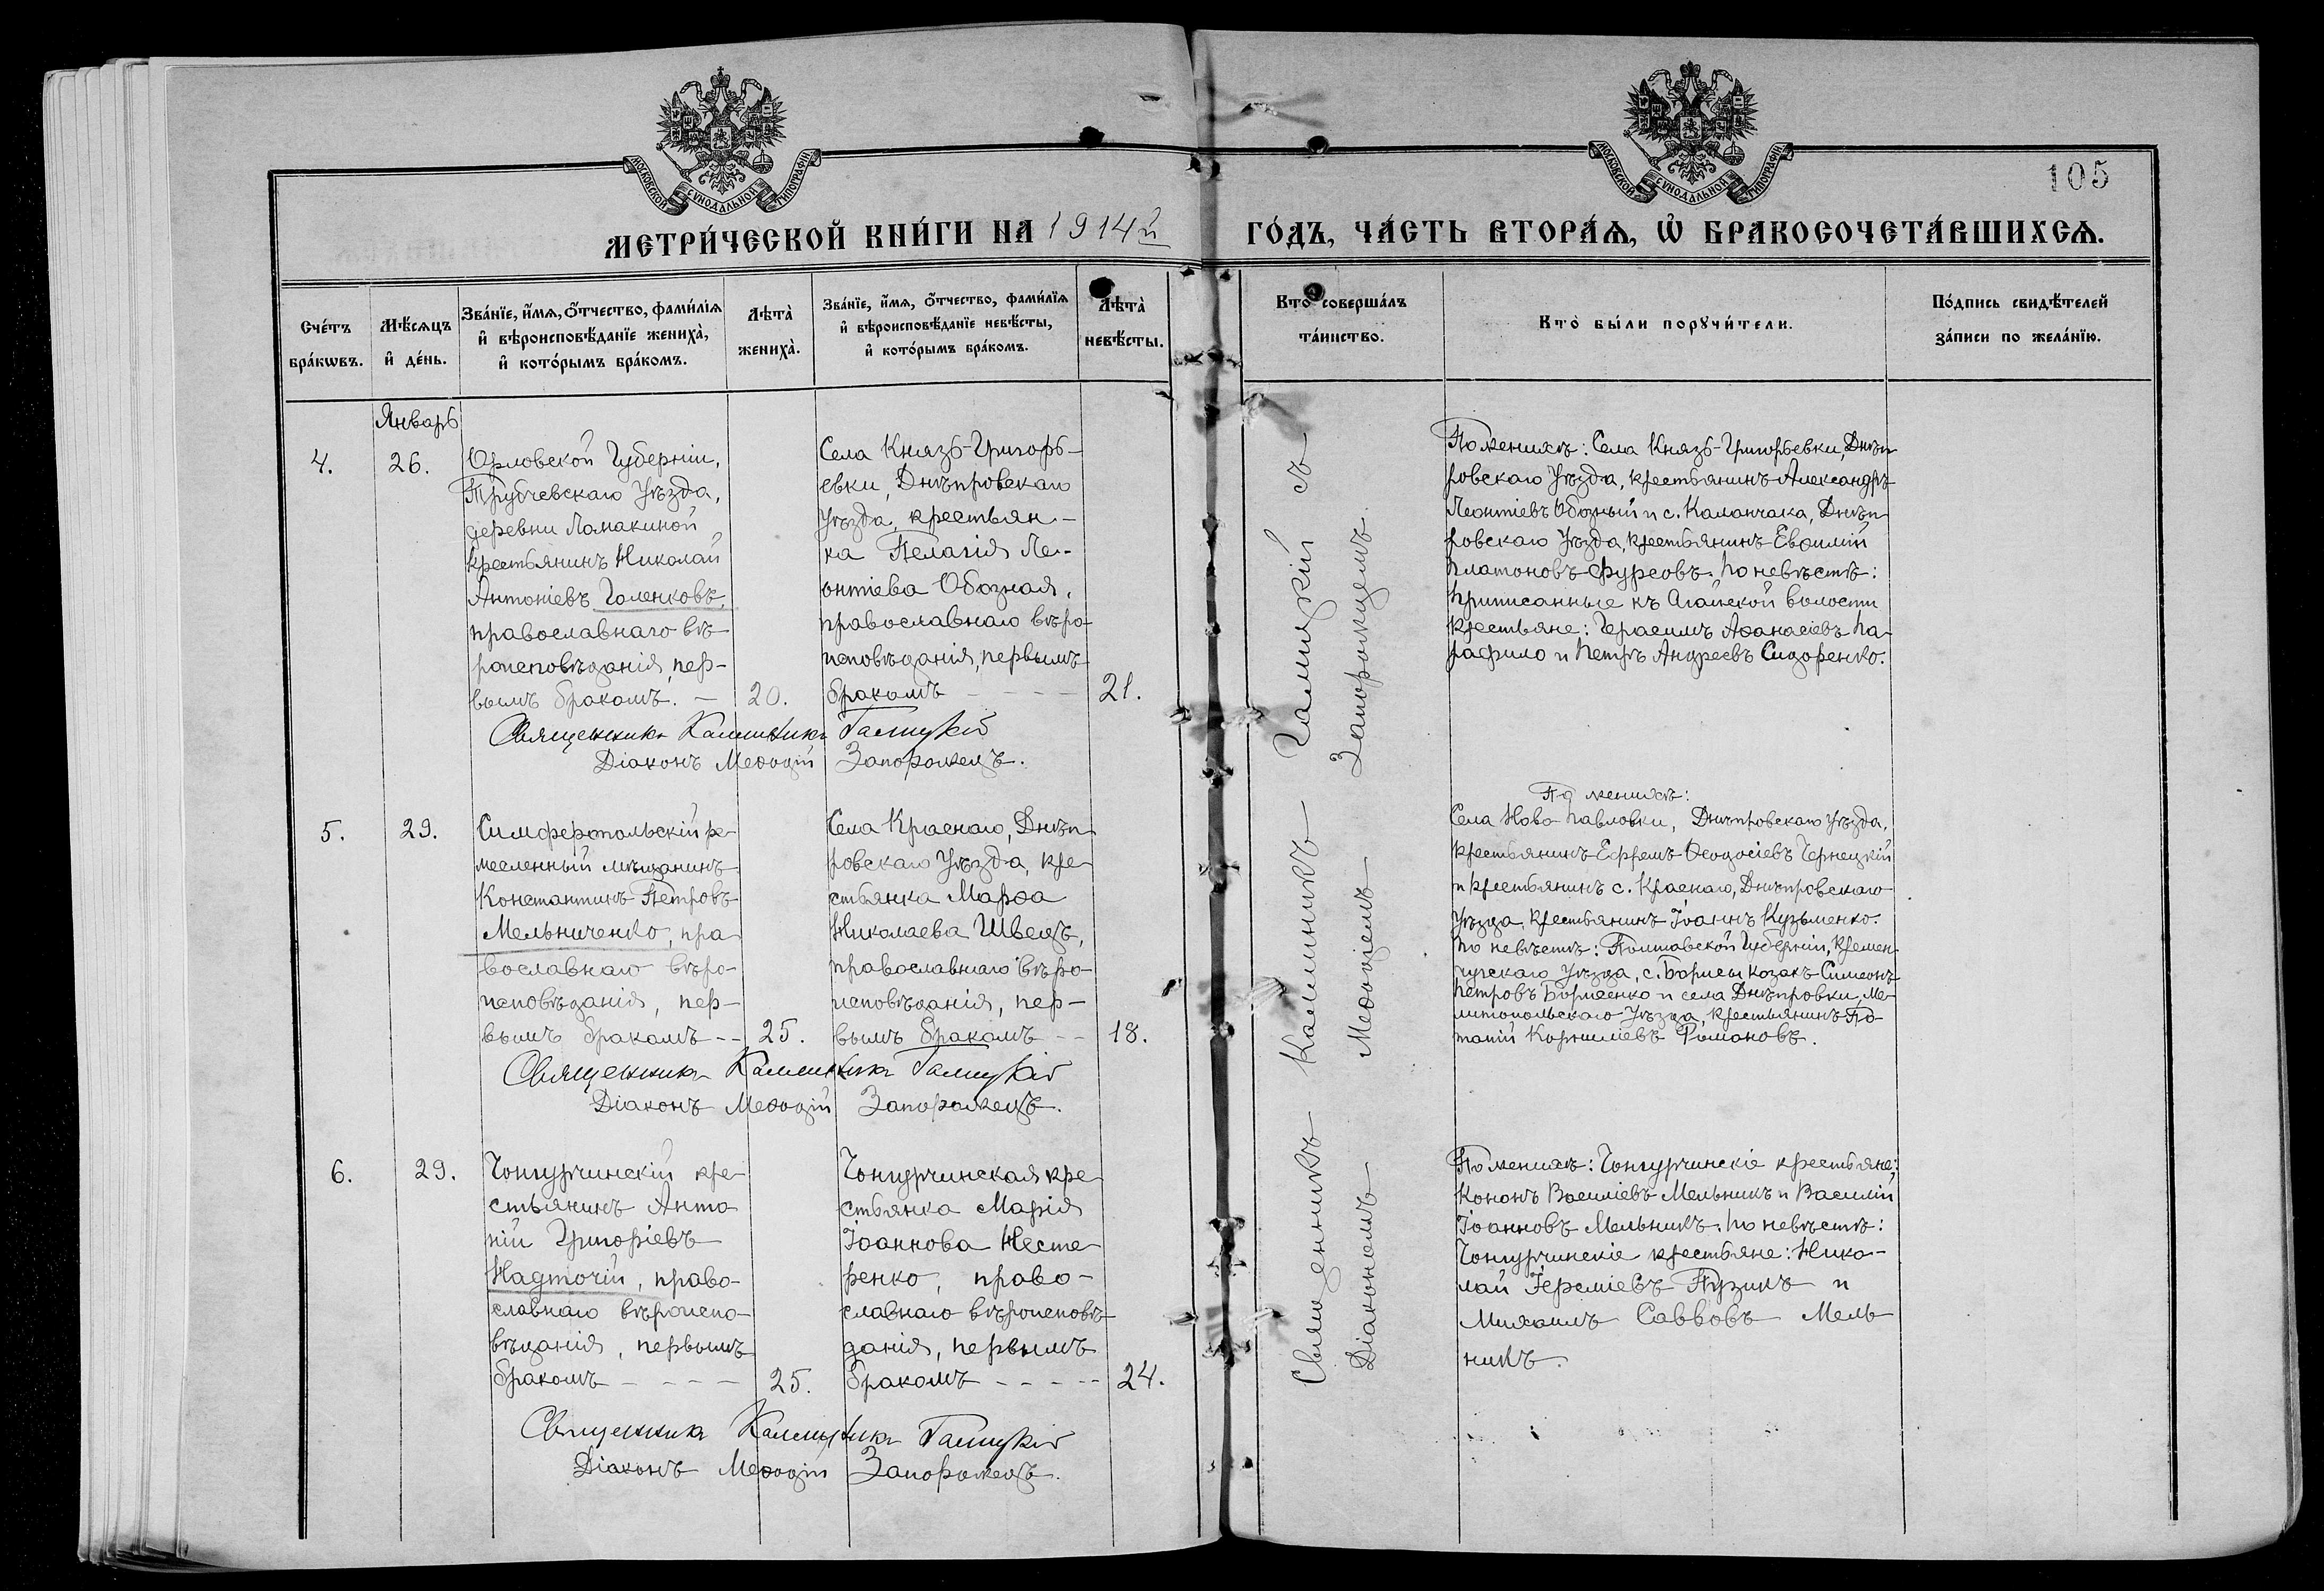 МОСКОВСКОЙ СѴНОДАЛЬНОЙ ТИПОГРАФІИ
МОСКОВСКОЙ СѴНОДАЛЬНОЙ ТИПОГРАФІИ
105
МЕТРИ́ЧЕСКОЙ КНИ́ГИ НА 1914й ГО́ДЪ, ЧА́СТЬ ВТОРА́Ѧ, Ѡ҆ БРАКОСОЧЕТА́ВШИХСѦ.
Сче́тъ
бра́кѡвъ.
Мѣ́сяцъ
и҆ де́нь.
Зва́нїе, и҆́мѧ, ѻ҆́тчество, фами́лїѧ
и҆ вѣроисповѣ́данїе жениха̀,
и҆ кото́рымъ бра́комъ.
Лѣта̀
жениха̀.
Зва́нїе, и҆́мѧ, ѻ҆́тчество, фами́лїѧ
и҆ вѣроисповѣ́данїе невѣ́сты,
и҆ кото́рымъ бра́комъ.
Лѣта̀
невѣ́сты.
Кто̀ соверша́лъ
та́инство.
Кто̀ бы́ли порꙋчи́тели.
По́дпись свидѣ́телей
за́писи по жела́нїю.
Январь
4.
26.
Орловской Губерніи,
Трубчевскаго Уѣзда,
деревни Ломакиной
крестьянинъ Николай
Антоніевъ Голенковъ,
православнаго вѣ-
роисповѣданія, пер-
вымъ бракомъ. –
20.
Села Князь-Григорь-
евки, Днѣпровскаго
Уѣзда, крестьян-
ка Пелагія Ле-
онтіева Обозная,
православнаго вѣро-
исповѣданія, первымъ
бракомъ – – – –
21.
Священникъ Каллиникъ Галицкій
Діаконъ Меѳодій Запорожецъ.
По женихѣ: Села Князь-Григорьевки, Днѣп-
ровскаго Уѣзда, крестьянинъ Александръ
Леонтіевъ Обозный и с. Каланчака, Днѣп-
ровскаго Уѣзда, крестьянинъ Евѳимій
Платоновъ Фурсовъ. По невѣстѣ:
Приписанные къ Агайской волости
крестьяне: Герасимъ Аѳанасіевъ Па-
рафило и Петръ Андреевъ Сидоренко.
5.
29.
Симферопольскій ре-
месленный мѣщанинъ
Константинъ Петровъ
Мельниченко, пра-
вославнаго вѣро-
исповѣданія, пер-
вымъ бракомъ – –
25.
Села Краснаго, Днѣп-
ровскаго Уѣзда, кре-
стьянка Марѳа
Николаева Швецъ,
православнаго вѣро-
исповѣданія, пер-
вымъ бракомъ – –
18.
Священникъ Каллиникъ Галицкій
Діаконъ Меѳодій Запорожецъ.
По женихѣ:
Села Ново-Павловки, Днѣпровскаго Уѣзда,
крестьянинъ Ефремъ Ѳеодосіевъ Чернецкій
и крестьянинъ с. Краснаго, Днѣпровскаго
Уѣзда, крестьянинъ Іоаннъ Кузьменко.
По невѣстѣ: Полтавской Губерніи, Кремен-
чугскаго Уѣзда, с. Борисы козакъ Симеонъ
Петровъ Борисенко и села Днѣпровки, Ме-
литопольскаго Уѣзда, крестьянинъ По-
тапій Корниліевъ Романовъ.
6.
29.
Чонгурчинскій кре-
стьянинъ Анто-
ній Григоріевъ
Надточій, право-
славнаго вѣроиспо-
вѣданія, первымъ
бракомъ – – – –
25.
Чонгурчинская кре-
стьянка Марія
Іоаннова Несте-
ренко, право-
славнаго вѣроисповѣ-
данія, первымъ
бракомъ – – – –
24.
Священникъ Каллиникъ Галицкій
Діаконъ Меѳодій Запорожецъ.
По женихѣ: Чонгурчинскіе крестьяне:
Кононъ Василіевъ Мельникъ и Василій
Іоанновъ Мельникъ. По невѣстѣ:
Чонгурчинскіе крестьяне: Нико-
лай Іереміевъ Пузикъ и
Михаилъ Саввовъ Мель-
никъ.
Священникъ Каллиникъ Галицкій съ
Діакономъ Меѳодіемъ Запорожцемъ.